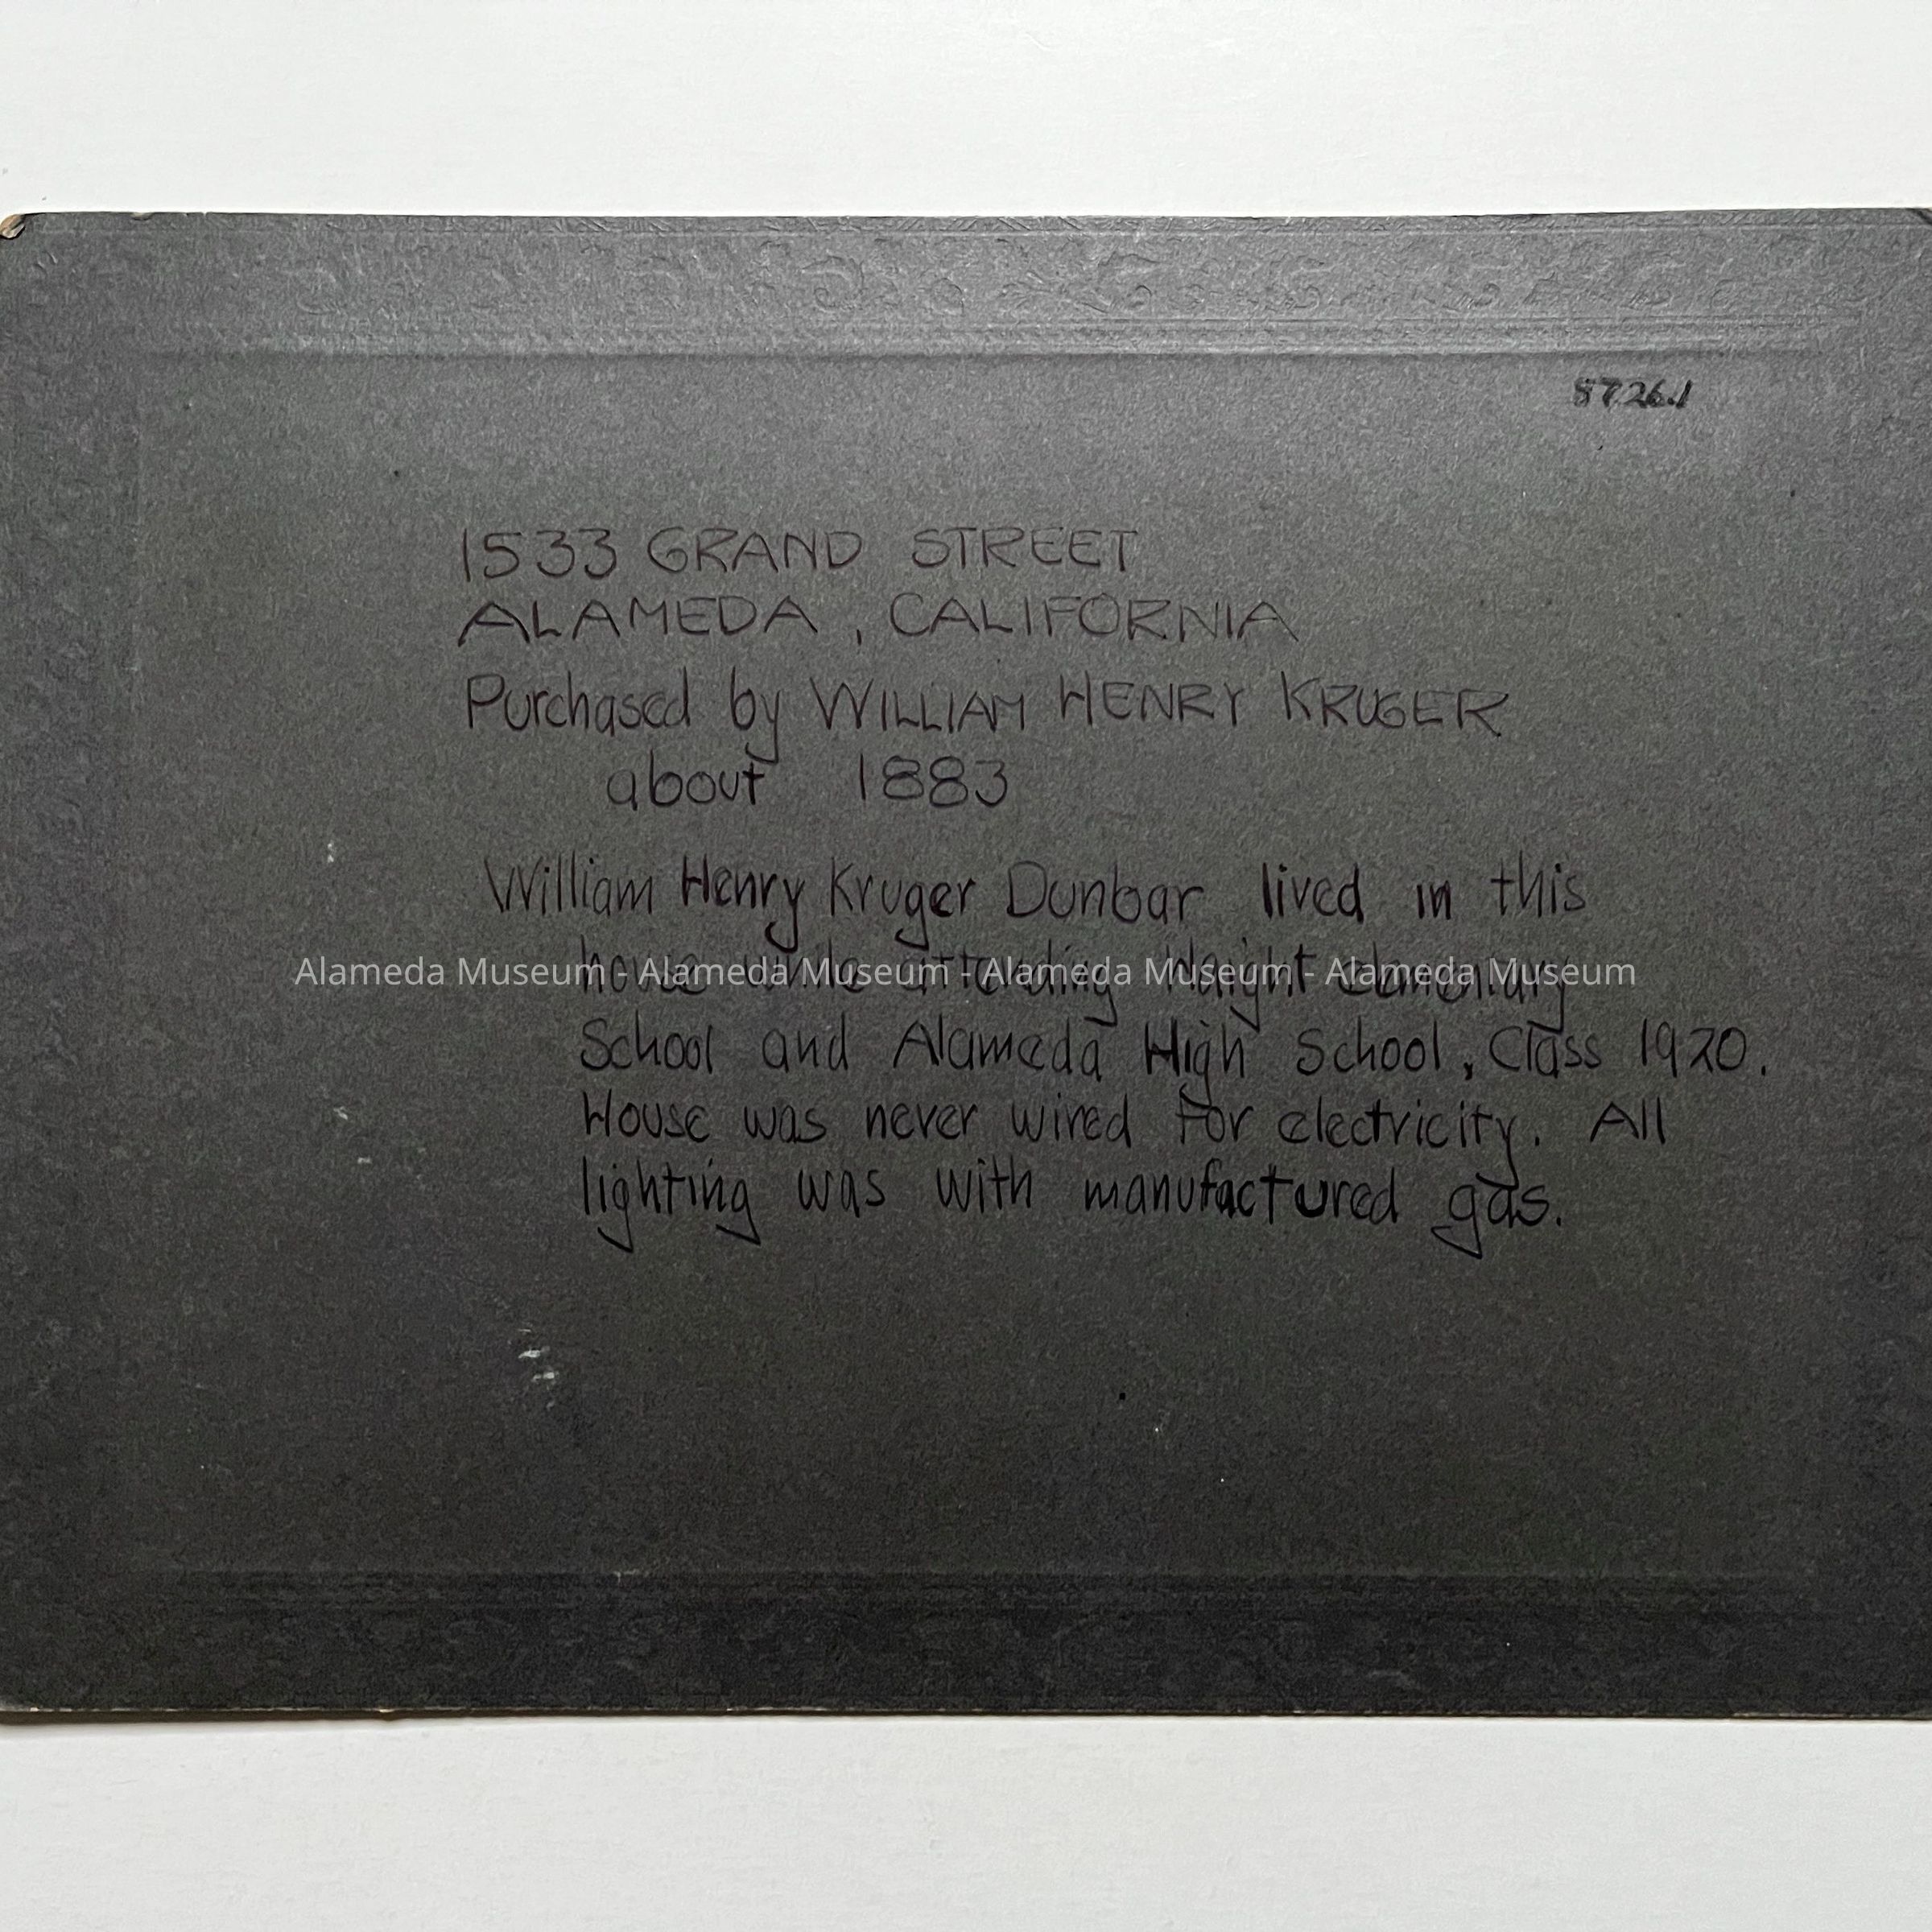 8726.1
1533 GRAND STREET
ALAMEDA, CALIFORNIA
Purchased by WILLIAM HENRY KRUGER
about 1883
William Henry Kruger Dunbar lived in this
house while attending Haight elementary
Alameda Museum - Alameda Museum - Alameda Museum - Alameda Museum
School and Alameda High School, Class 1920.
House was never wired for electricity. All
lighting was with manufactured gas.